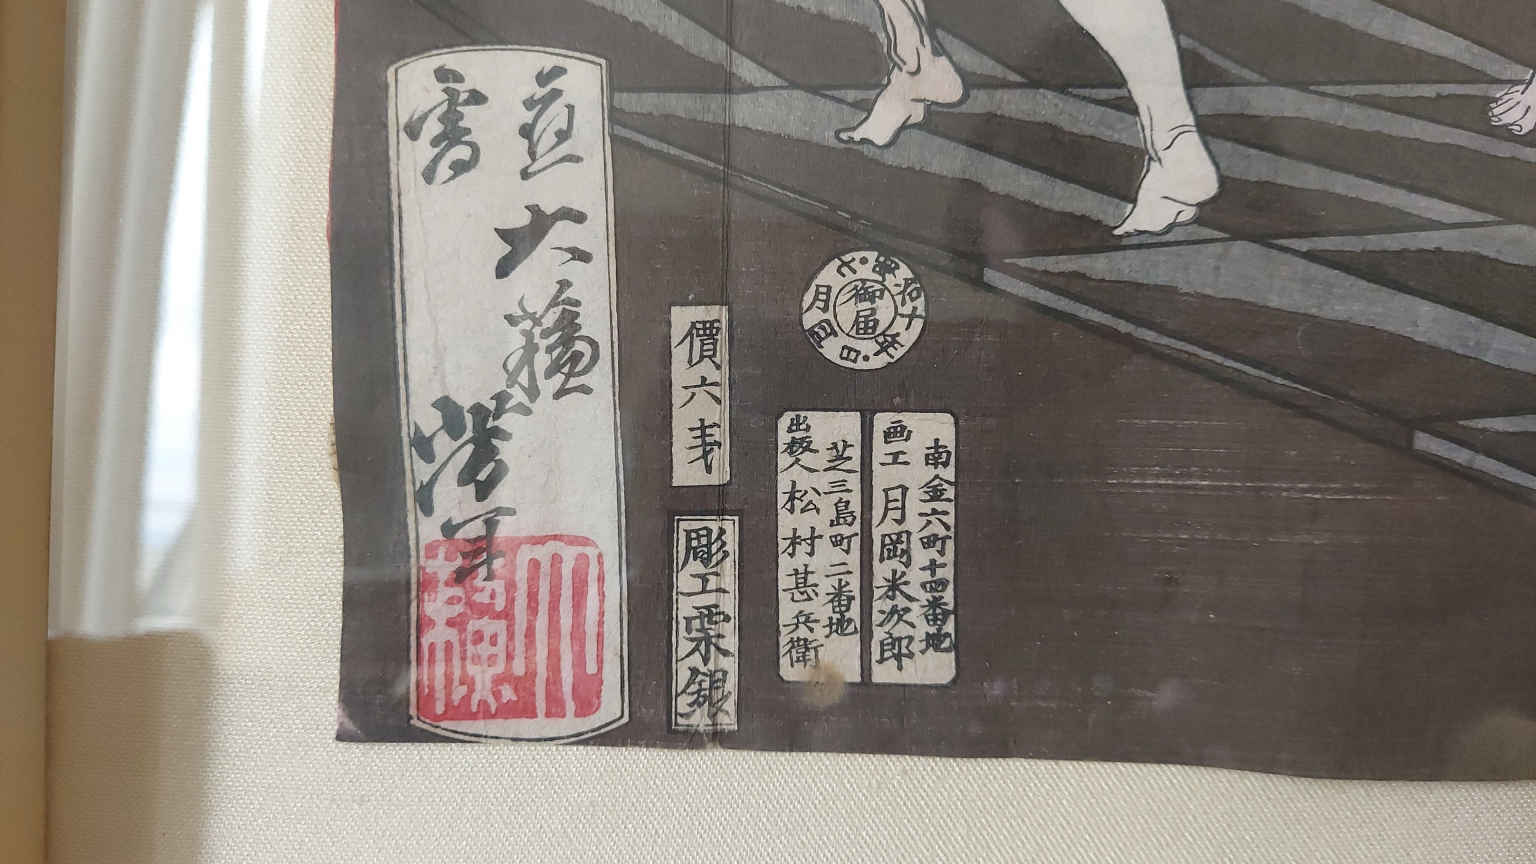 南金六町十四番地
画工 月岡米次郎
芝三島町二番地
出板人 松村甚兵衛
御届
明治十年・七月四日
價六戋
彫工栗銀
應需
大蘓芳年